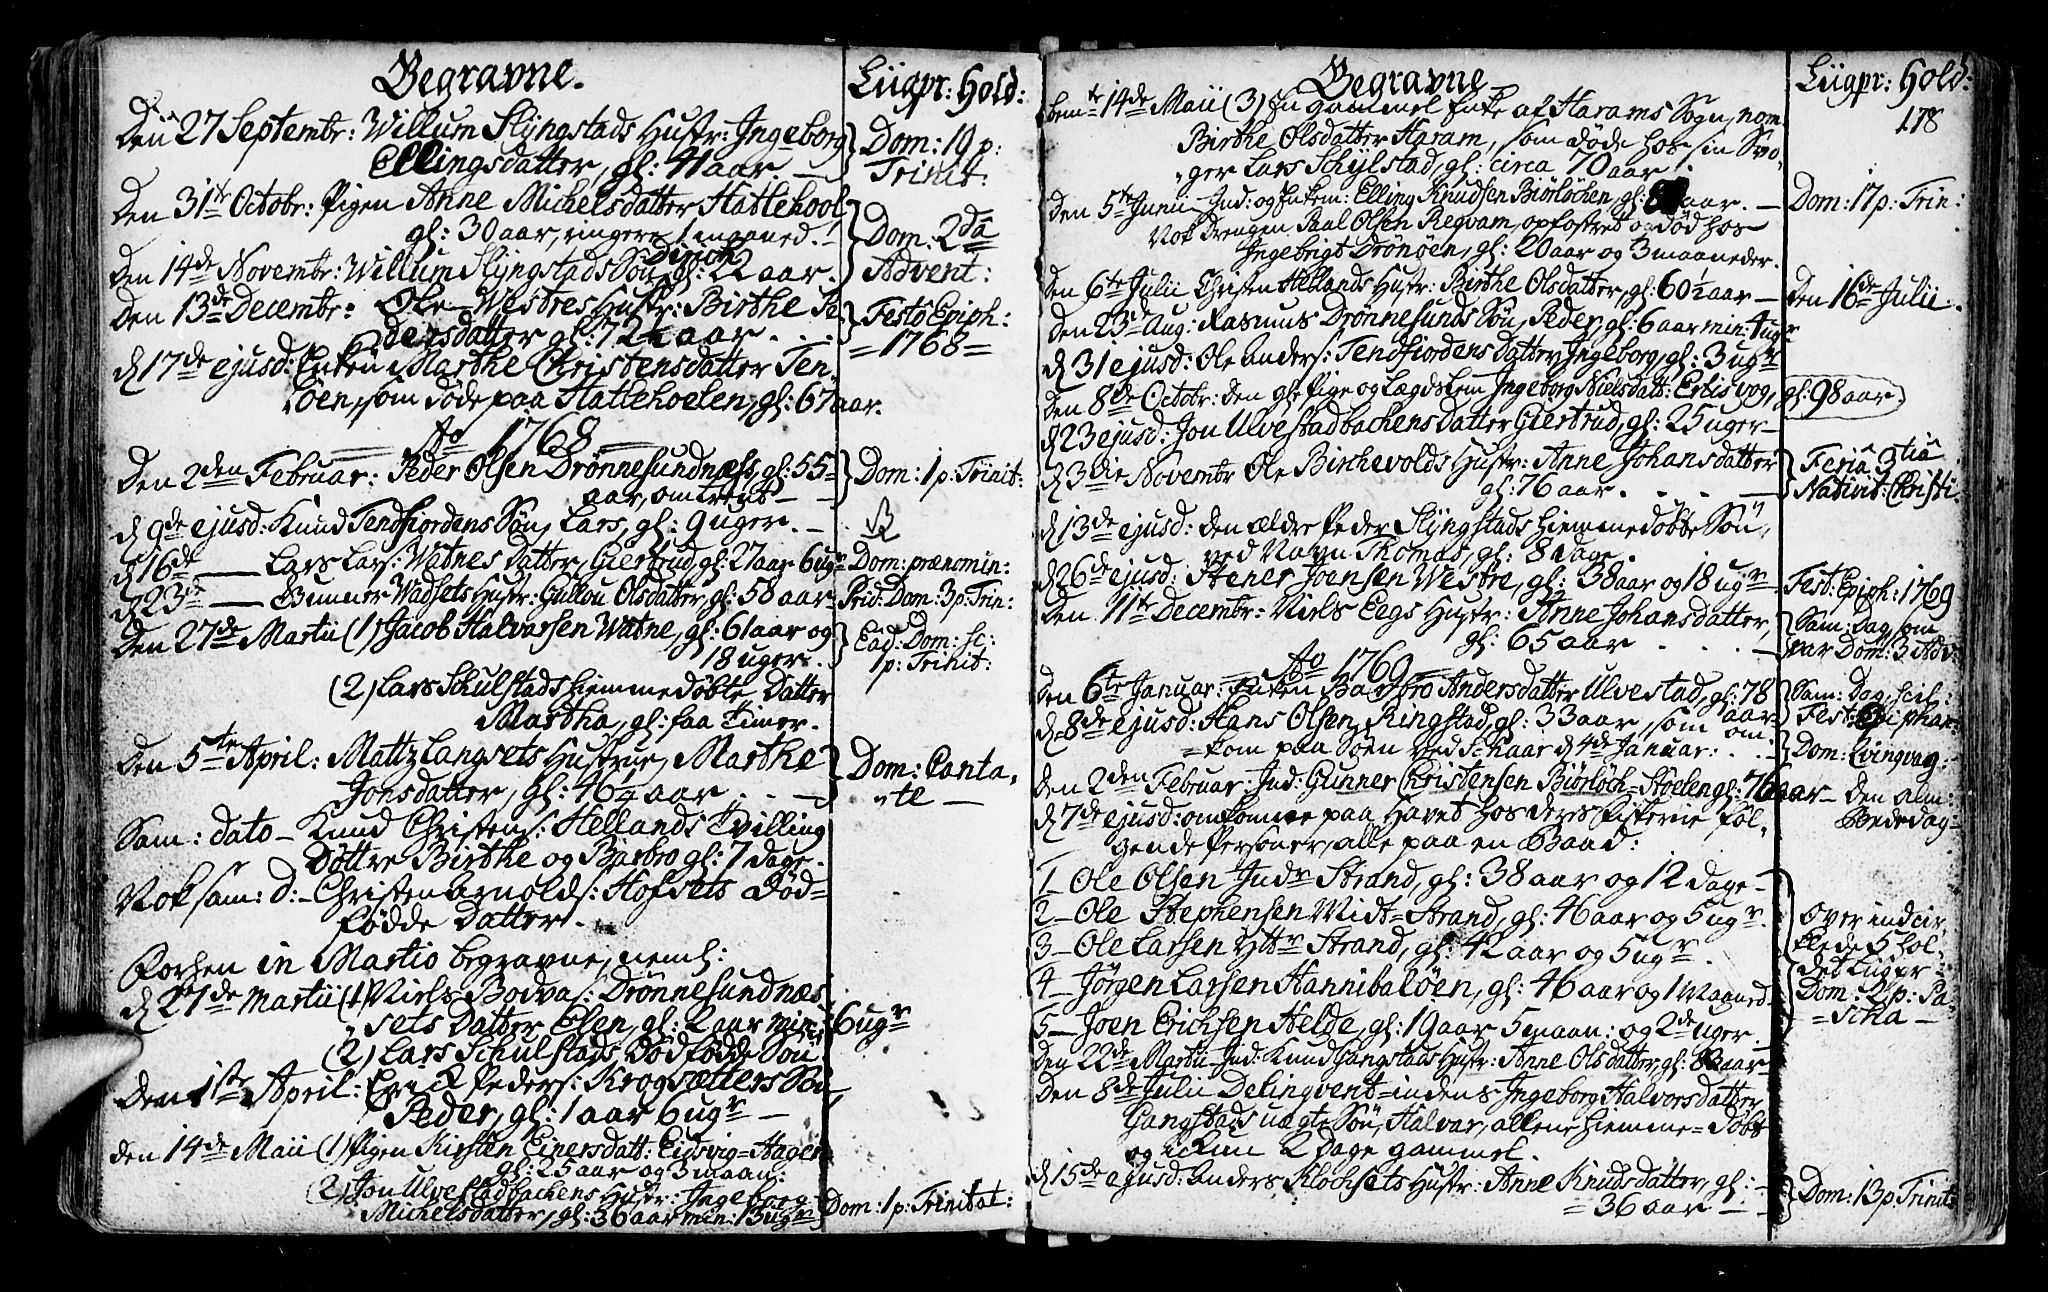 Begravne.
Liigpr: Hold:
Den 27 Septembr: Willum Slÿngstads Hustr: Ingeborg
Ellingsdatter, gl: 41 aar. —
Dom: 19 p:
Trinit:
Den 31te Octobr: Pigen Anne Michelsdatter Hattlehool
gl: 30 aar, ringere 1 maaned. —
Dom: 2da
Advent:
Den 14de Novembr: Willum Slÿngstads Søn gl: 22 aar.
Den 13de Decembr: Ole Westres Hustr: Birthe Pe
dersdatter gl: 72½ aar . . .
Festo Epiph:
= 1768 =
d 17de ejusd: Enken Marthe Christensdatter Ten
søen, som døde paa Hattlehoelen, gl: 67 aar.
Ao 1768
Den 2den Februar: Peder Olsen Drønnesundnæss, gl: 55
aar, omtrent —
Dom: 1 p: Trinit:
d 9de ejusd: Knud Tendfiordens Søn, Lars, gl: 9 uger. —
d 16de — Lars Lars: Watnes Datter, Giertrud, gl: 27 aar 6 ugr
Dom: prænomin:
d 23de — Gunner Wadsets Hustr: Gullou Olsdatter, gl: 58 aar
Prid: Dom: 3 p: Trin:
Den 27de Martii (1) Jacob Halvorsen Watne, gl: 61 aar og
18 uger.
Ead: Dom: sc:
1 p: Trinit:
(2) Lars Schulstads hiemmedøbte Datter
Martha, gl: faa Timer.
Den 5te April: Mattz Langsets Hustrue, Marthe
Jonsdatter, gl: 46¼ aar . . —
Dom: Canta
te —
Sam: dato — Knud Christens: Hellands Tvilling
Døttre Birthe og Barbro gl: 7 dage.
Nok sam: d: — Christen Arnolds: Hofsets Død=
fødde Datter.
Forhen in Martio begravne, neml:
d 27de Martii (1) Niels Bodvas: Drønnesundnæs
sets Datter Elen, gl: 2 aar min: 6 ugr
(2) Lars Schulstads Dødfødde Søn
Den 1ste April: Eric Peders: Krogsætters Søn,
Peder, gl: 1 aar 6 ugr —
Den 14de Maii (1) Pigen Kirsten Einersdatt: Eidsvig=Hagen
gl: 25 aar og 3 maan:
(2) Jon Ulvestadbackens Hustr: Ingeborg
Michelsdatter, gl: 36 aar min: 13 ugr
Dom: 1 p: Trinitat:
Begravne
Liigpr: Hold:
178
Den 14de Maii (3) En gammel Enke af Harams Sogn, nom:
Birthe Olsdatter Haram, som døde hos sin Svo=
ger Lars Schÿlstad, gl: circa 70 aar.
Den 5te Junii — Ind: og Enkem: Elling Knudsen Biørløchen, gl: aar. —
Dom: 17 p: Trin:
Nok Drengen Paal Olsen Regvam, opfostret og død hos
Ingebrigt Drønøen, gl: 20 aar og 3 maaneder.
Den 6te Julii Christen Hellands Hustr: Birthe Olsdatter, gl: 60½ aar —
Den 16de Julii.
Den 23de Aug: Rasmus Drønnesunds Søn, Peder, gl: 6 aar min: 4 ugr
d 31 ejusd: Ole Anders: Tendfiordens datter Ingeborg, gl: 3 ugr
Den 8de Octobr: den gle Pige og Lægdslem Ingeborg Nielsdatt: Erlisvog, gl: 98 aar.
d 23 ejusd: Jon Ulvestadbackens Datter Giertrud, gl: 25 uger —
d 23die Novembr Ole Birchevolds Hustr: Anne Johansdatter
gl: 76 aar . . . —
Feria 3tia
Nativit: Christi
d 13de ejusd: den ældre Peder Slÿngstads hiemmedøbte Søn,
ved Navn Thomas, gl: 8 dage.
d 26de ejusd: Stener Joensen Westre, gl: 38 aar og 18 ugr
Fest: Epiph: 1769
Den 11te Decembr: Niels Eegs Hustr: Anne Johansdatter,
gl: 65 aar . . . —
Sam: Dag, som
var Dom: 3 Adv:
Ao 1769
Den 6te Januar: Enken Barbro Andersdatter Ulvestad, gl: 78
aar
Sam: Dag, scil:
Fest: Epiphan:
d 8de ejusd: Hans Olsen Ringstad, gl: 33 aar, som om=
kom paa Søen ved Skaar d 4de Januar: . .
Dom: Qvinqvag:
Den 2den Februar: Ind: Gunner Christensen Biørløch=Hoelen gl: 76 aar —
Den alm:
Bededag —
d 7de ejusd: omkomne paa Havet hos deres Fiskerie føl=
gende Personer, alle paa en Baad:
1 — Ole Olsen Indr Strand, gl: 38 aar og 12 dage —
2 — Ole Stephensen Midt=Strand, gl: 46 aar og 5 ugr.
3 — Ole Larsen Yttr Strand, gl: 42 aar og 5 ugr.
4 — Jörgen Larsen Hannibaløen, gl: 46 aar og 1 Maaned.
5 — Joen Erichsen Helde, gl: 19 aar 5 maan: og 2de uger
Over indcir
klede 5 hol=
det Liigpr:
Dom: 2 p: Pa=
scha —
Den 22de Martii Ind: Knud Gangstads Hustr: Anne Olsdatter, gl: aar
Den 8de Julii Delinqventindens Ingeborg Halvorsdatter
Gangstads uægte Søn, Halvar, allene hiemme=døbt
og ickun 2 Dage gammel.
d 15de ejusd: Anders Klochsets Hustr: Anne Knudsdatter, gl: —
= 36 aar — —
Dom: 13 p: Trinit: